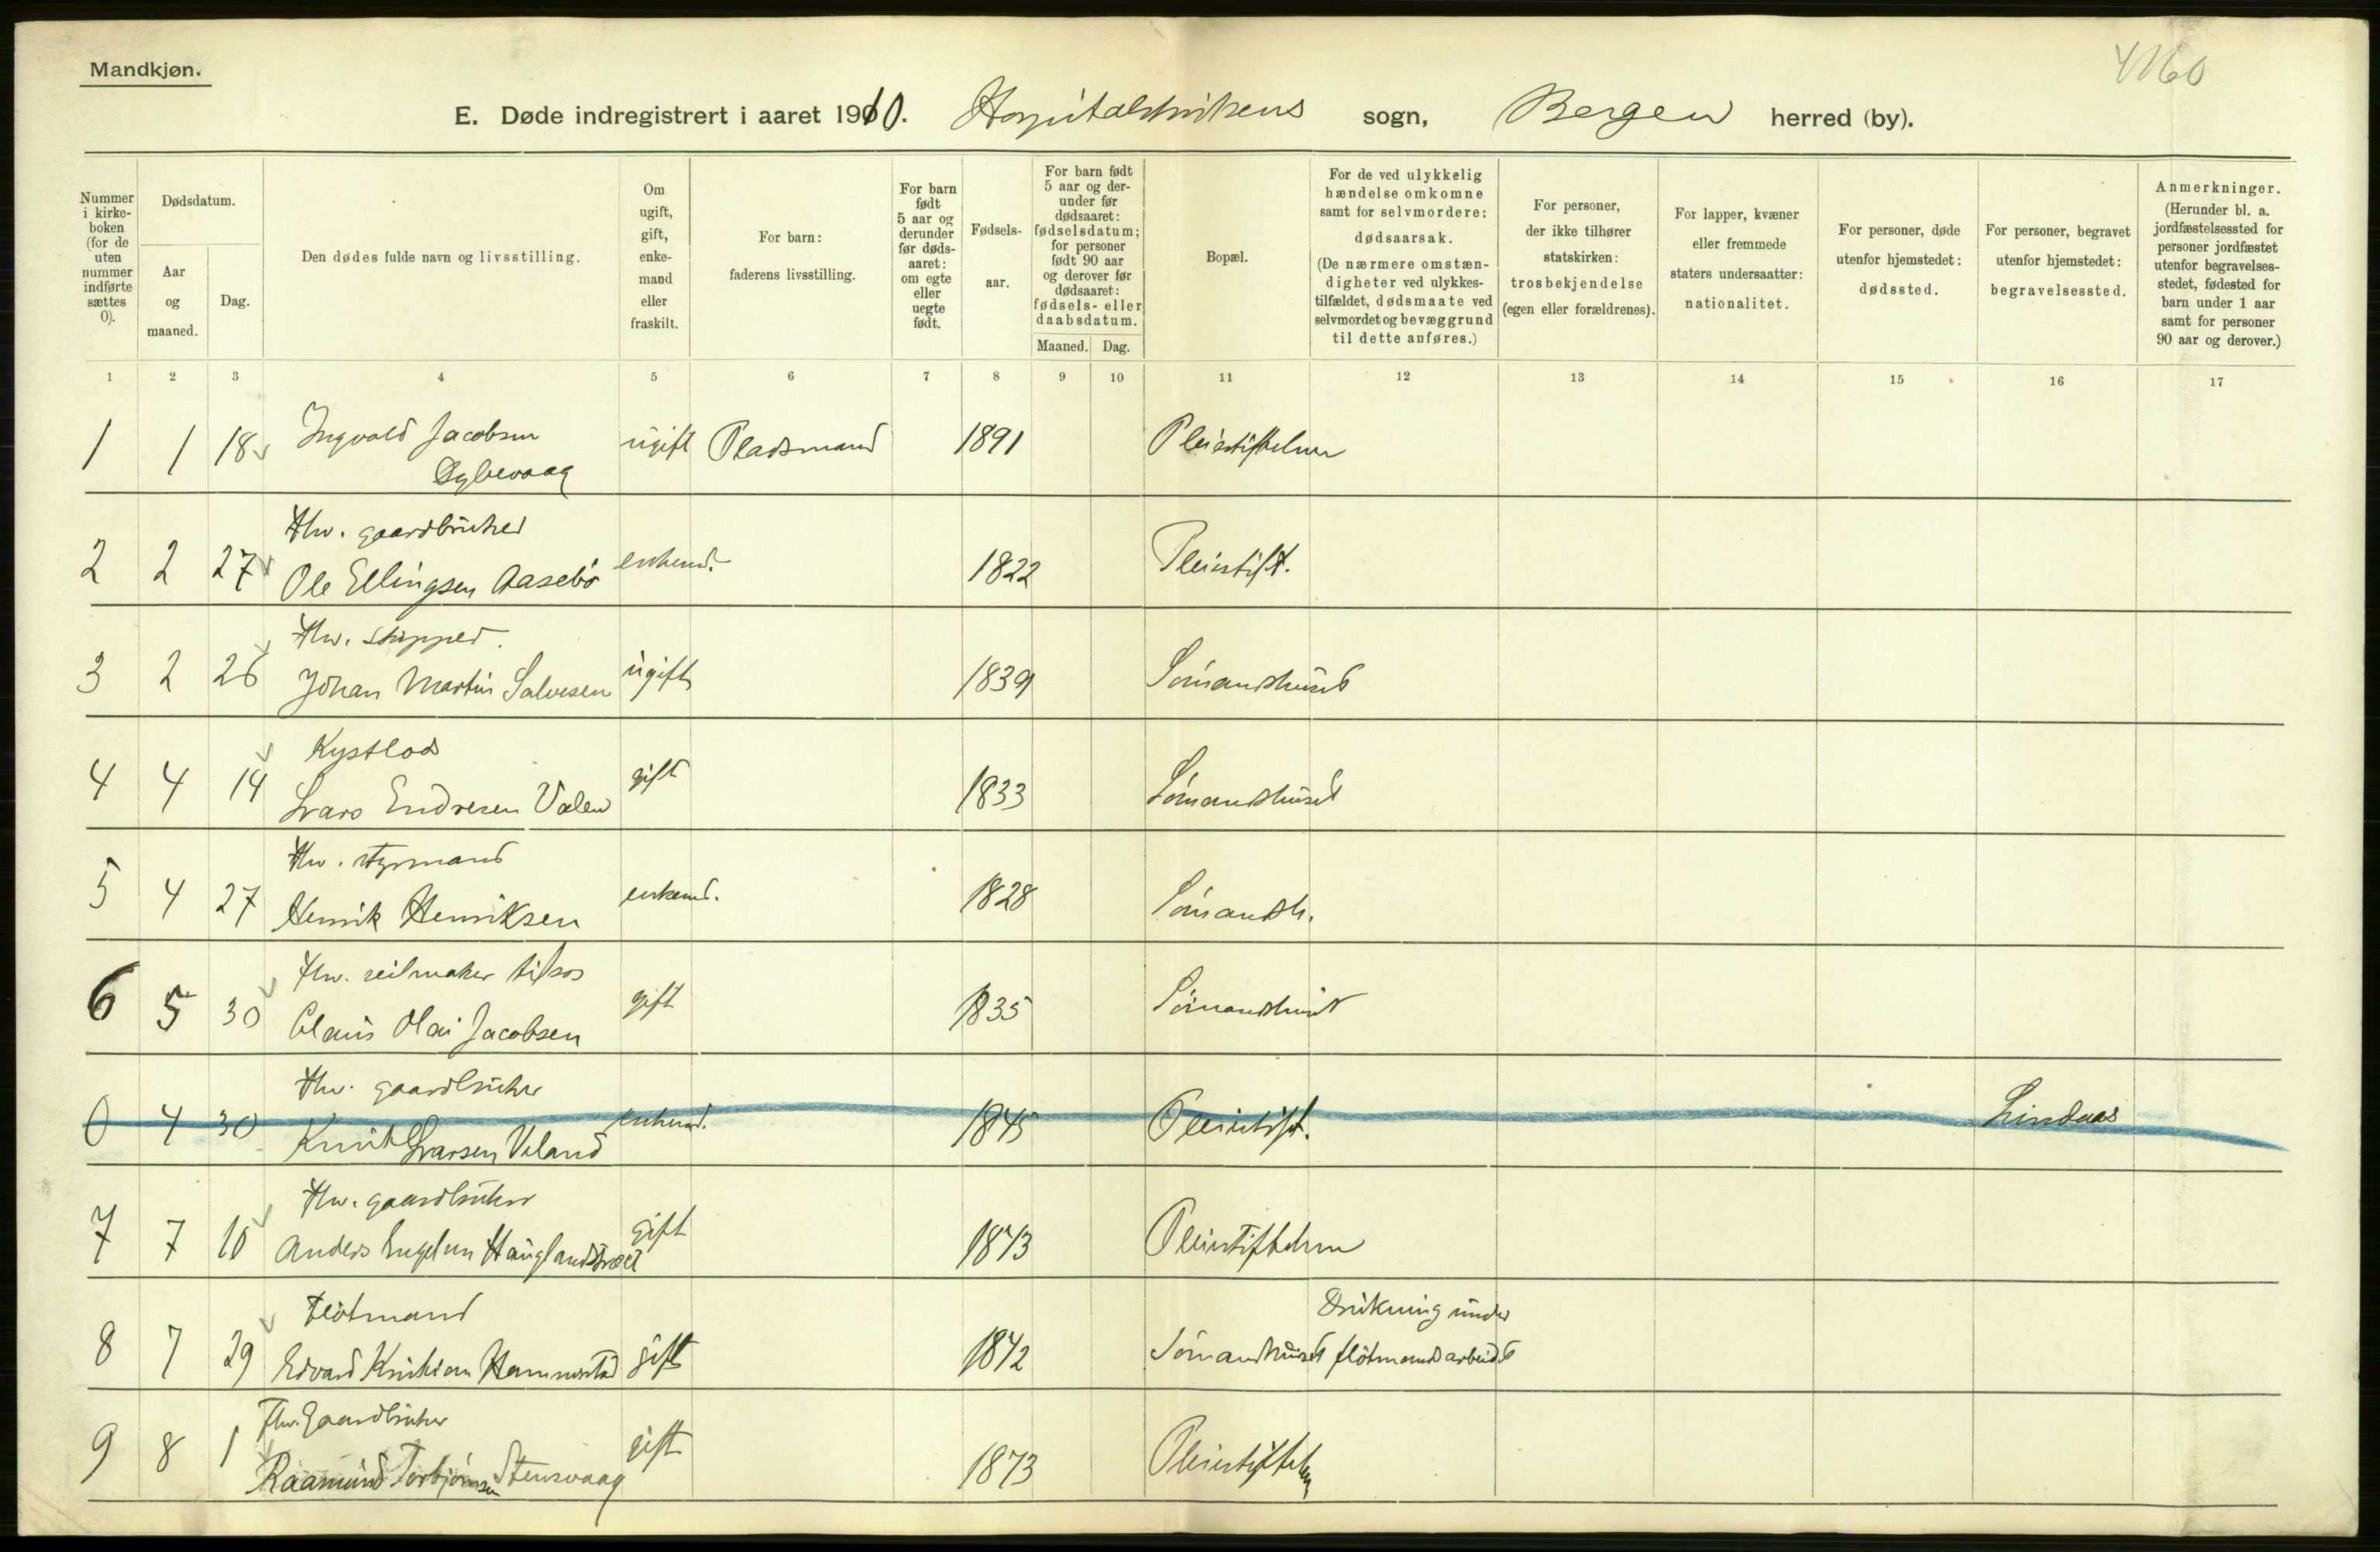 Mandkjøn.
4160
E. Døde indregistrert i aaret 1910. Hospitalskirkens sogn, Bergen herred (by).
Nummer i kirke-boken (for de uten nummer indførte sættes 0).
Dødsdatum.
Aar og maaned.
Dag.
Den dødes fulde navn og livsstilling.
Om ugift, gift, enke-mand eller fraskilt.
For barn: faderens livsstilling.
For barn født 5 aar og derunder før døds-aaret: om egte eller uegte født.
Fødsels-aar.
For barn født 5 aar og der-under før dødsaaret: fødselsdatum; for personer født 90 aar og derover før dødsaaret: fødsels- eller daabsdatum.
Maaned. Dag.
Bopæl.
For de ved ulykkelig hændelse omkomne samt for selvmordere: dødsaarsak. (De nærmere omstæn-digheter ved ulykkes-tilfældet, dødsmaate ved selvmordet og bevæggrund til dette anføres.)
For personer, der ikke tilhører statskirken: trosbekjendelse (egen eller forældrenes).
For lapper, kvæner eller fremmede staters undersaatter: nationalitet.
For personer, døde utenfor hjemstedet: dødssted.
For personer, begravet utenfor hjemstedet: begravelsessted.
Anmerkninger. (Herunder bl. a. jordfæstelsessted for personer jordfæstet utenfor begravelses-stedet, fødested for barn under 1 aar samt for personer 90 aar og derover.)
1 2 3 4 5 6 7 8 9 10 11 12 13 14 15 16 17
1 1 18 Ingvald Jacobsen ugift Pladsmand 1891 Pleiestiftelsen
Dybevaag
Fhv. gaardbruker
2 2 27 Ole Ellingsen Aasebö enkemd. 1822 Pleiestift.
Fhv. skipper.
3 2 26 Johan Martin Salvesen ugift 1839 Sömandshuset
Kystlods
4 4 14 Lars Endresen Valen gift 1833 Sömandshuset
Fhv. styrmand
5 4 27 Henrik Henriksen enkemd. 1828 Sömandsh.
Fhv. seilmaker tilsøs
6 5 30 Claus Olai Jacobsen gift 1835 Sömandshuset
Fhv. gaardbruker
0 4 30 Knut Larsen Veland enkemd. 1845 Pleiestift. Lindaas
Fhv. gaardbruker
7 7 10 Anders Engelsen gift 1843 Pleiestiftelsen
Flötmand Drukning under
8 7 29 Edvard Kristian gift 1842 Sömandshuset flötmandsarbeide
Fhv. Gaardbruker
9 8 1 Raamund Torbjörnsen Stensvaag gift 1873 Pleiestiftelsen